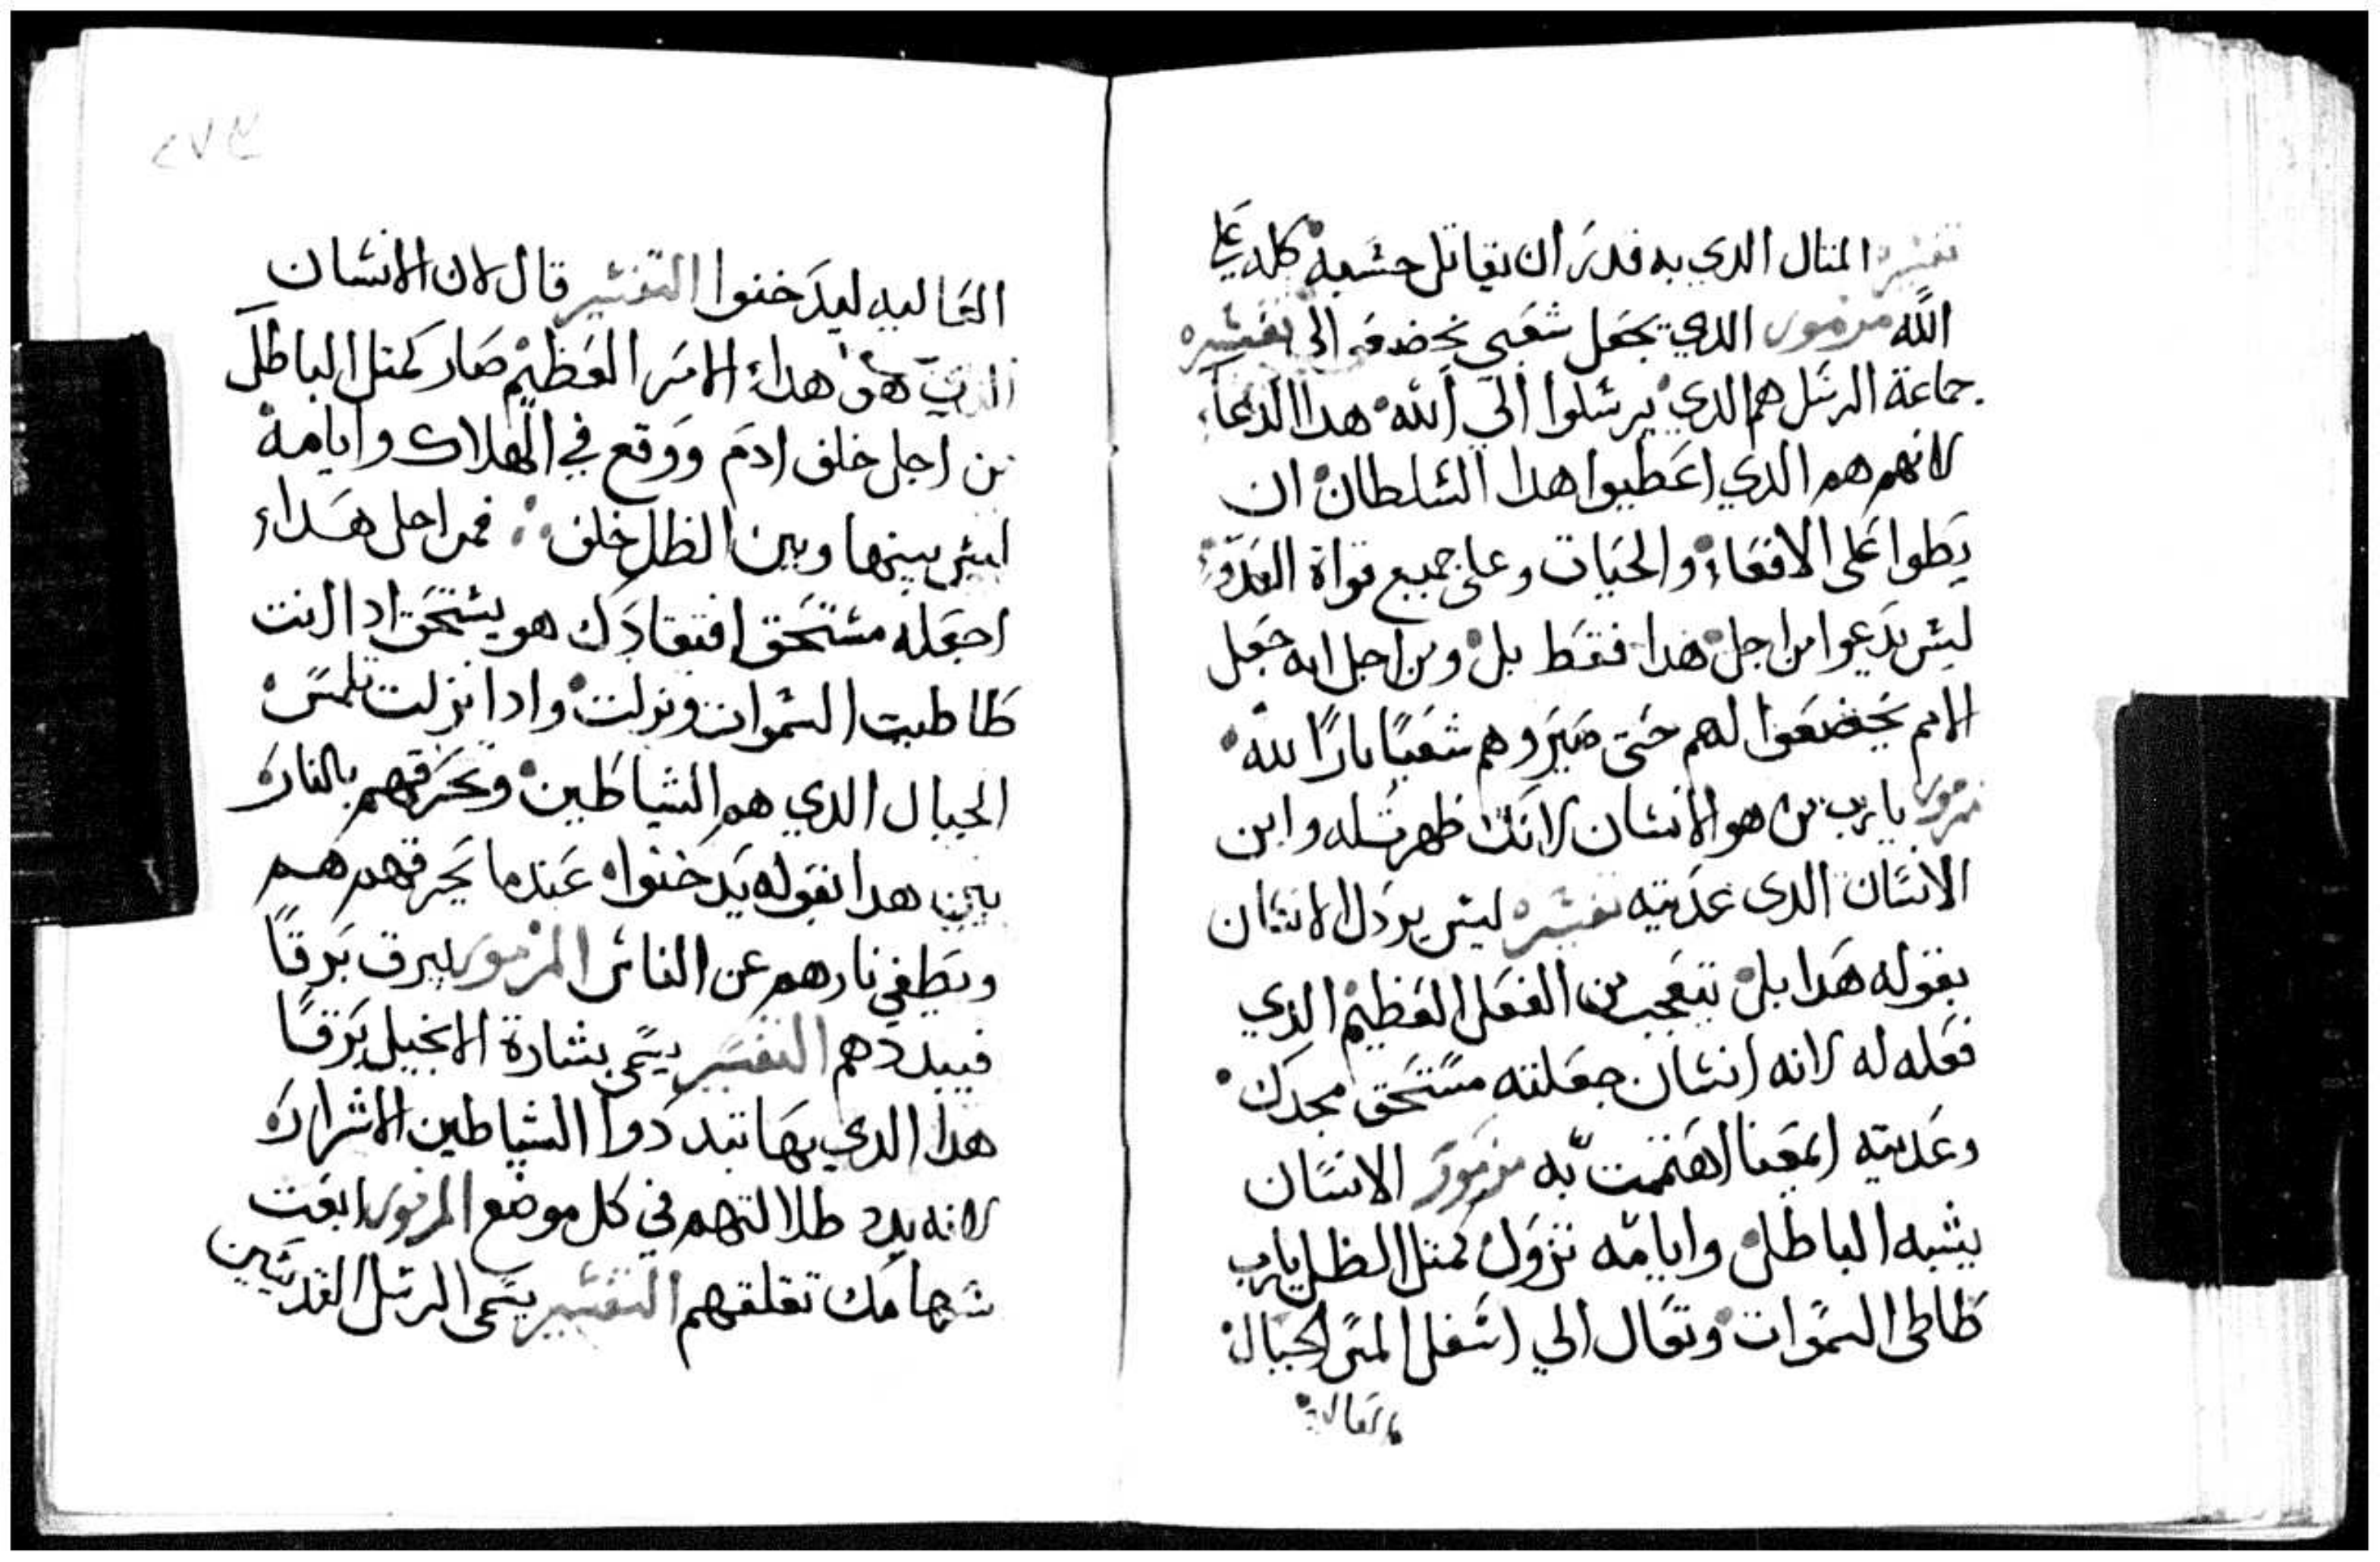 تفسيره المتال الدي به قدر ان يقاتل حسمه كله علي
الله مزمور الدي يجعل شعبي تخضعه الى تفسيره
جماعة الرسل هم الدي يرسلوا الي الله هدا الدعاء
لانهم هم الدي اعطيوا هدا السلطان ان
يطوا على الافعاء والحيات وعلى جميع قواة العدو
ليس يدعيوا من اجل هدا فقط بل ومن اجل انه جعل
الامم يخضعوا لهم حتى صيروهم شعبًا بارًا لله
مزمور يا رب من هو الانسان لانك ظهرتله وابن
الانسان الدى عديته تفسيره ليس يردل الانسان
بقوله هدا بل يتعجب من الفعل العظيم الدي
فعله له لانه انسان جعلته مستحق مجدك
وعديته ايمعنا اهتممت به مزمور الانسان
يشبه الباطل وايامه تزول كمتل الظل يارب
طاطى السموات وتعال الي اسفل المس الجبال
العاليه
العاليه ليدخنوا التفسير قال لان الانسان
الدي هو هداء الامر العظيم صار كمتل الباطل
من اجل خلف ادم ووقع في الهلاك وايامه
ليس بينها وبين الظل خلف فمن اجل هداء
اجعله مستحق افتقادك هو يستحق ادا انت
طاطيت السموات ونزلت وادا نزلت تلمس
الجبال الدي هم الشياطين وتحرقهم بالنار
بين هدا بقوله يدخنوا عندما يحرقهم هم
وتطفي نارهم عن الناس المزمور يبرق برقًا
فيبددهم التفسير يسمى بشارة الانجيل برقًا
هدا الدي بها تبددوا الشياطين الاشرار
لانه يدد طلالتهم في كل موضع المزمور ابعت
سهامك تقلقهم التفسير يسمى الرسل القديسين